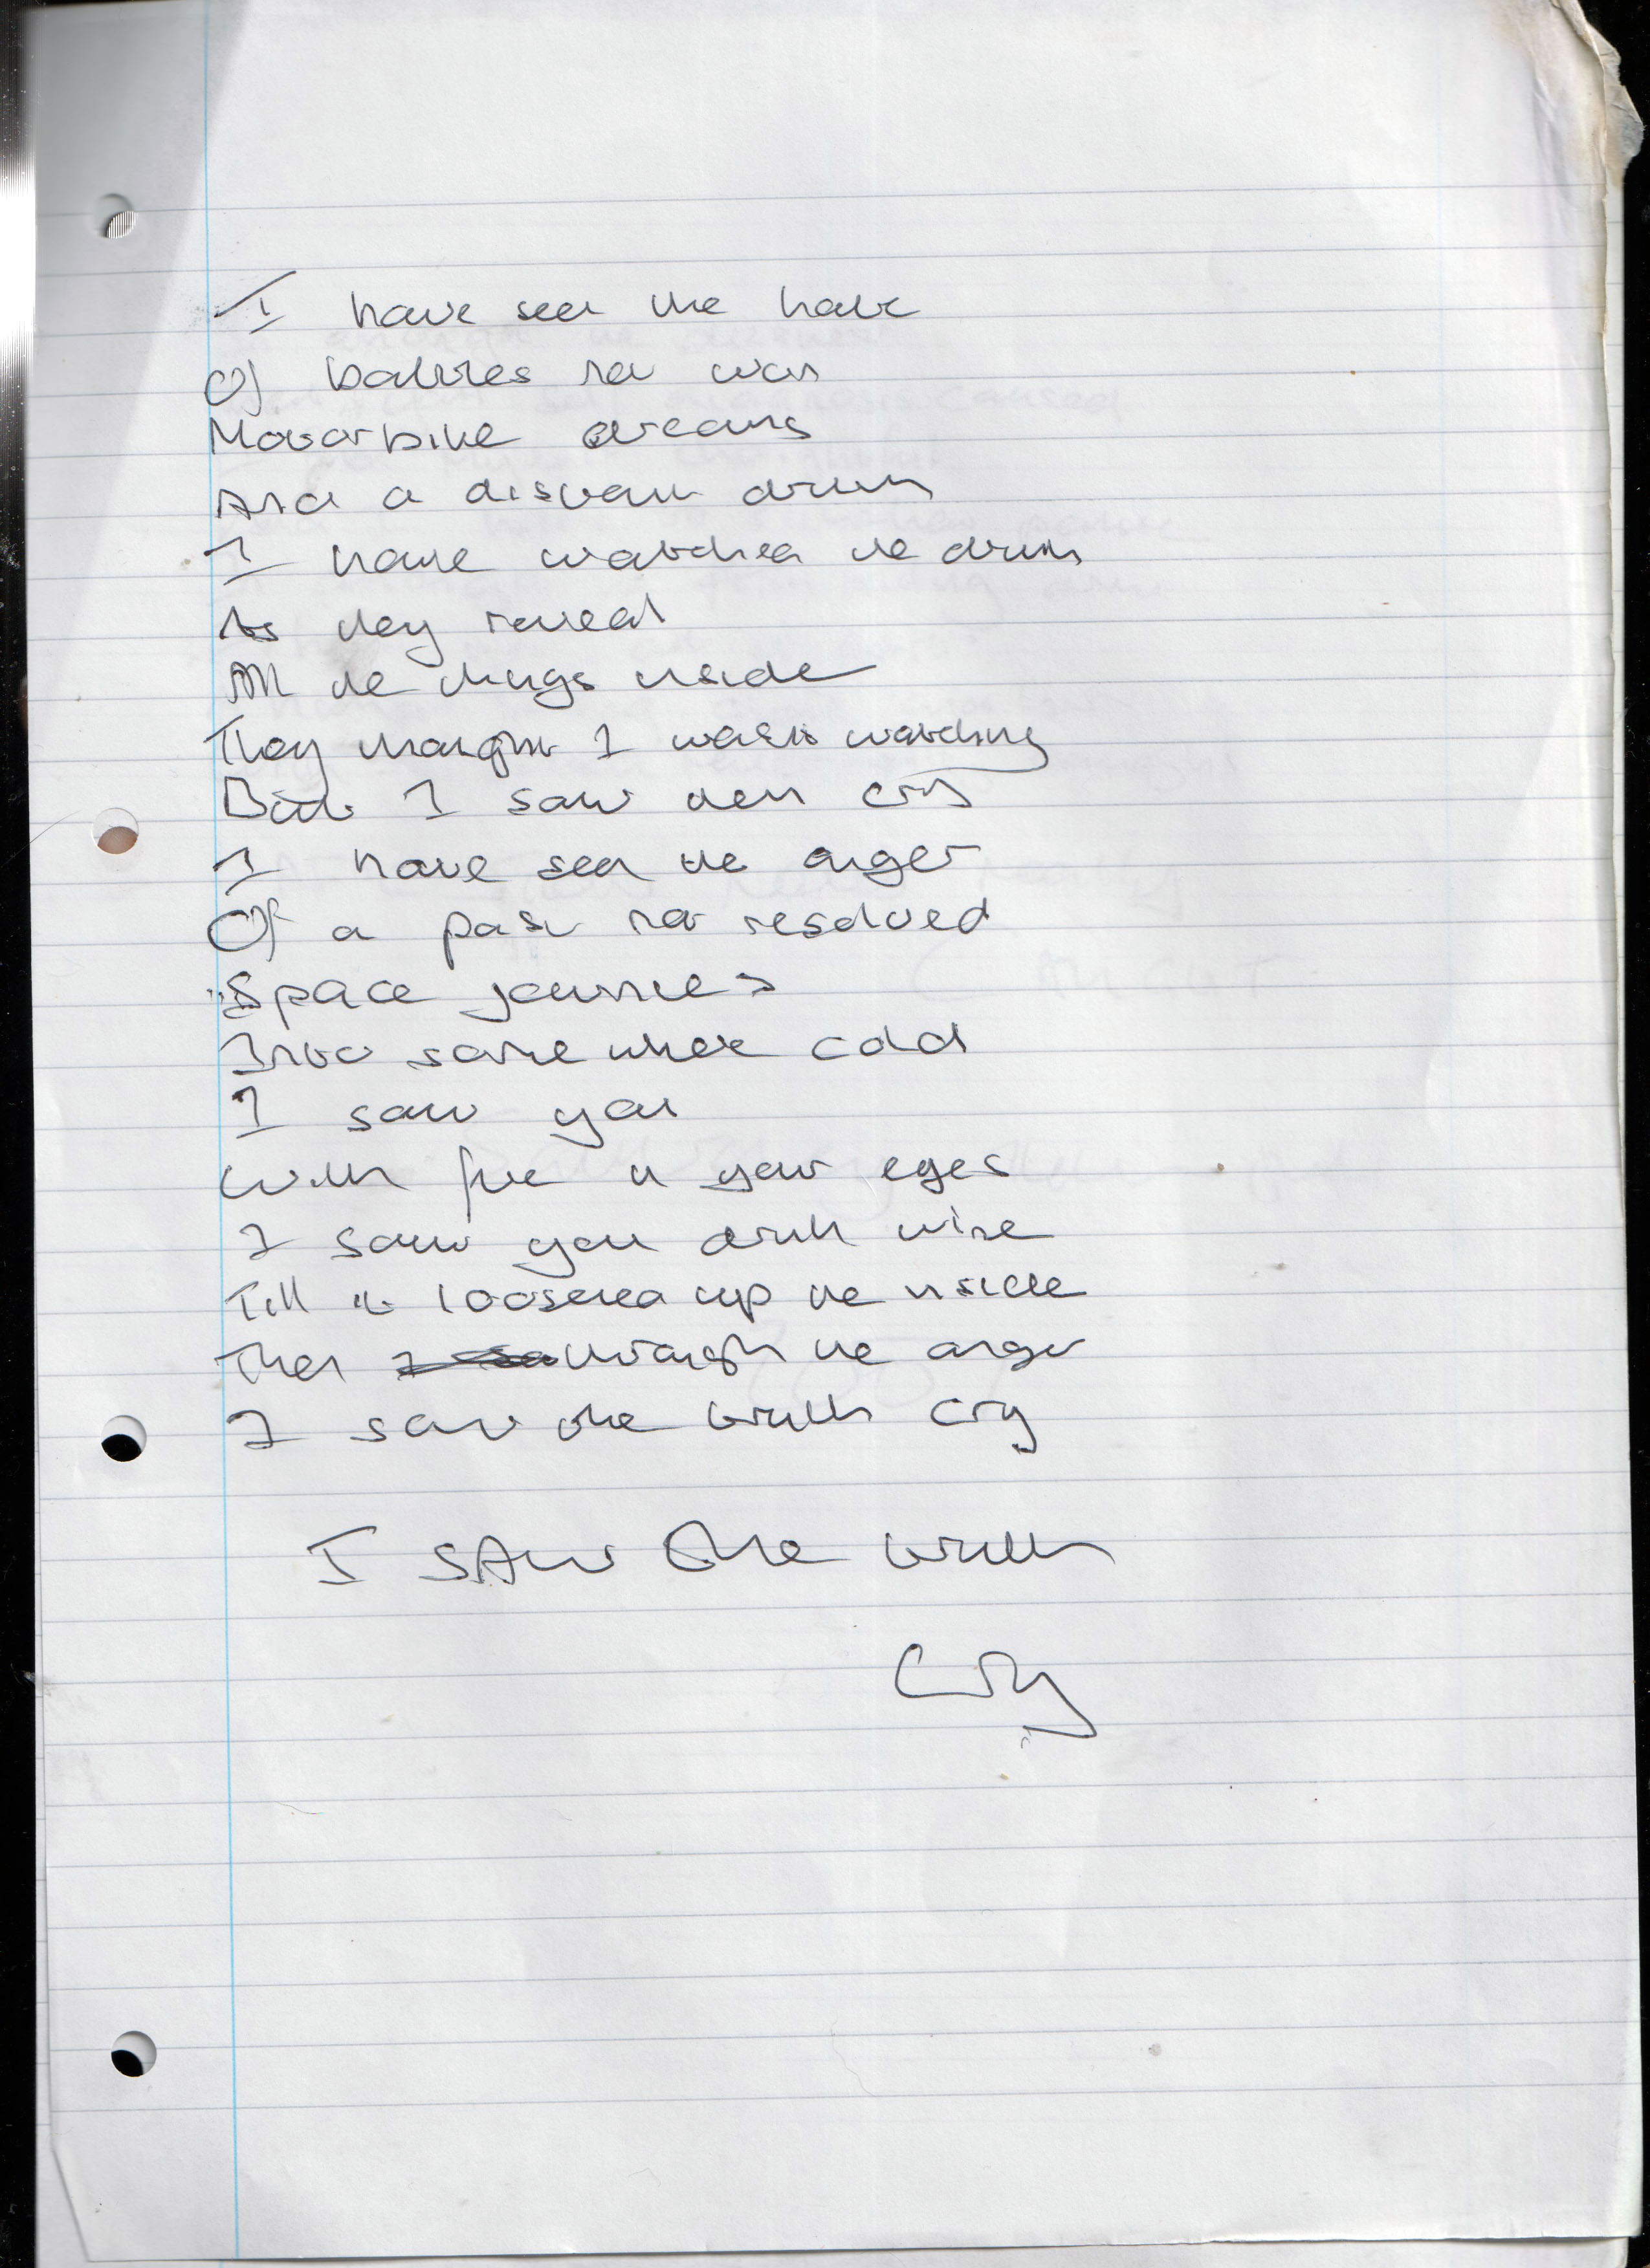 I have seen the hate
Of battles not won
Motorbike dreams
And a distant drum
I have watched the drunk
As they reveal
All the things inside
They thought I wasn't watching
But I saw them cry
I have seen the anger
Of a past not resolved
Space journies
Into somewhere cold
I saw you
With fire in your eyes
I saw you drink wine
Till it loosened up the inside
Then through the anger
I saw the truth cry
I SAw the truth
Cry